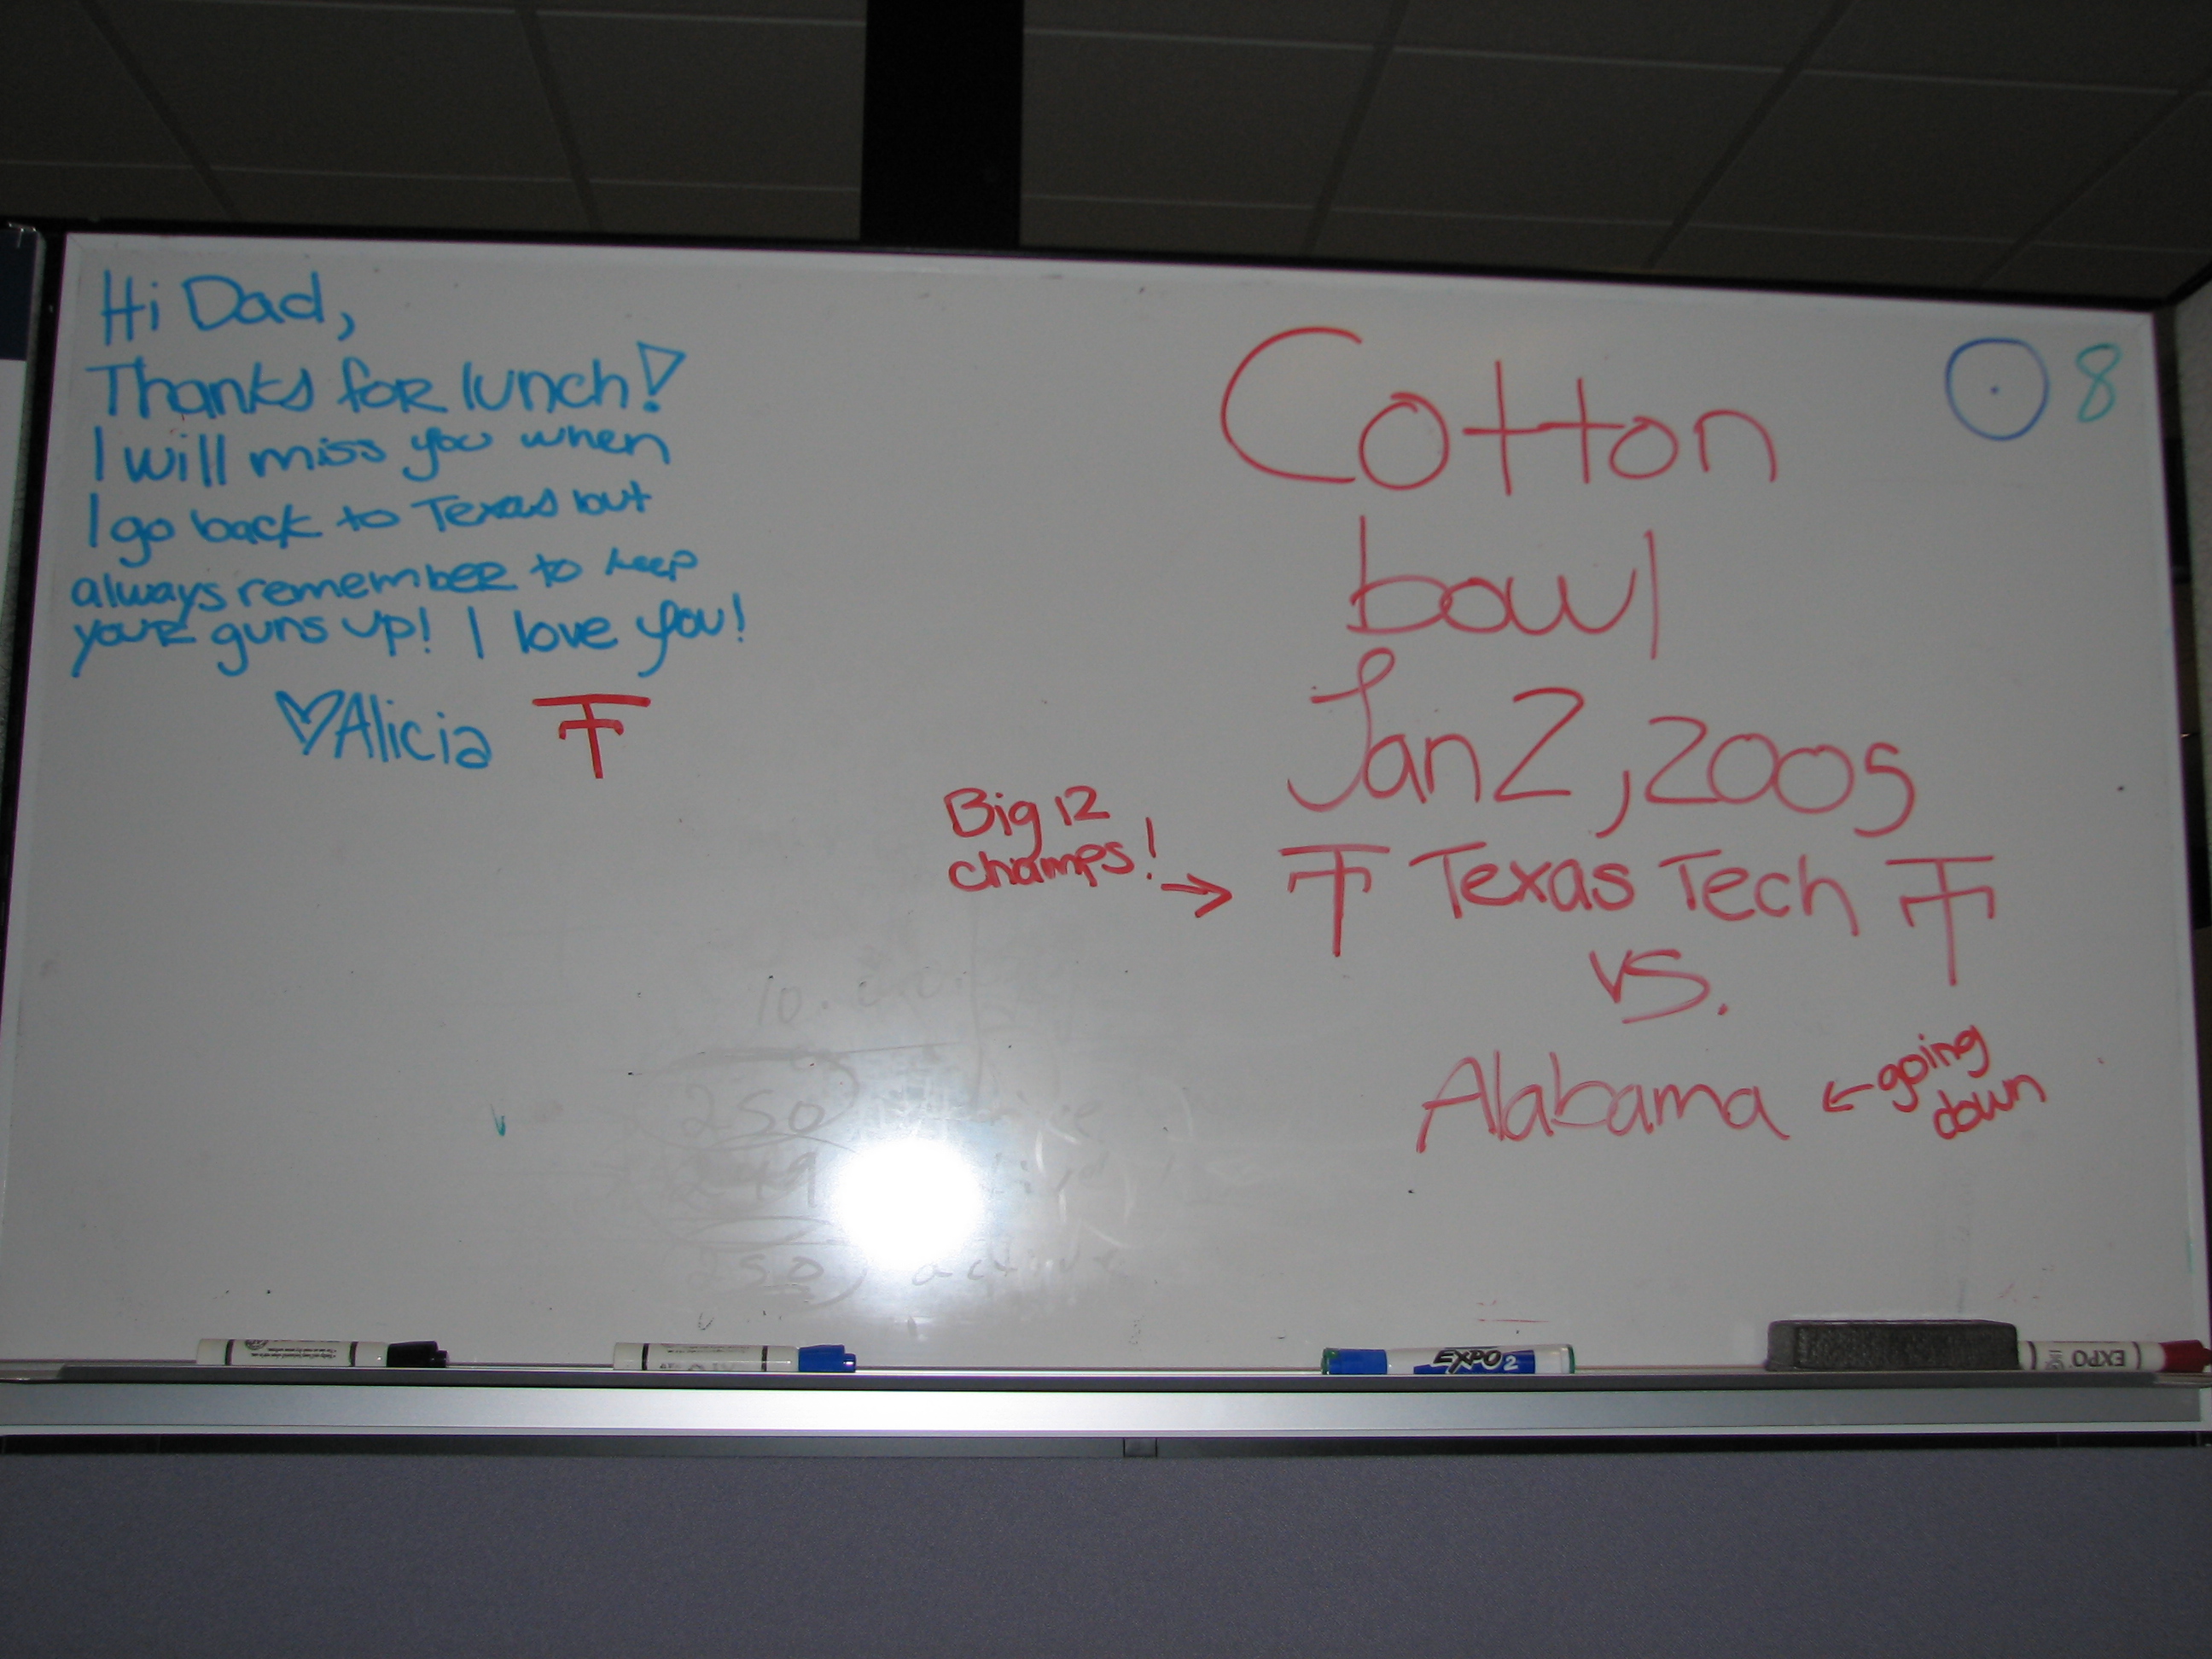 Hi Dad,
Thanks for lunch!
I will miss you when
I go back to Texas but
always remember to keep
your guns up! I love you!
♡Alicia TT
Cotton
bowl
Jan 2, 2005
Big 12
champs! →
TT Texas Tech TT
vs.
Alabama ← going
down
8
250
249
250, active
EXPO 2
EXPO